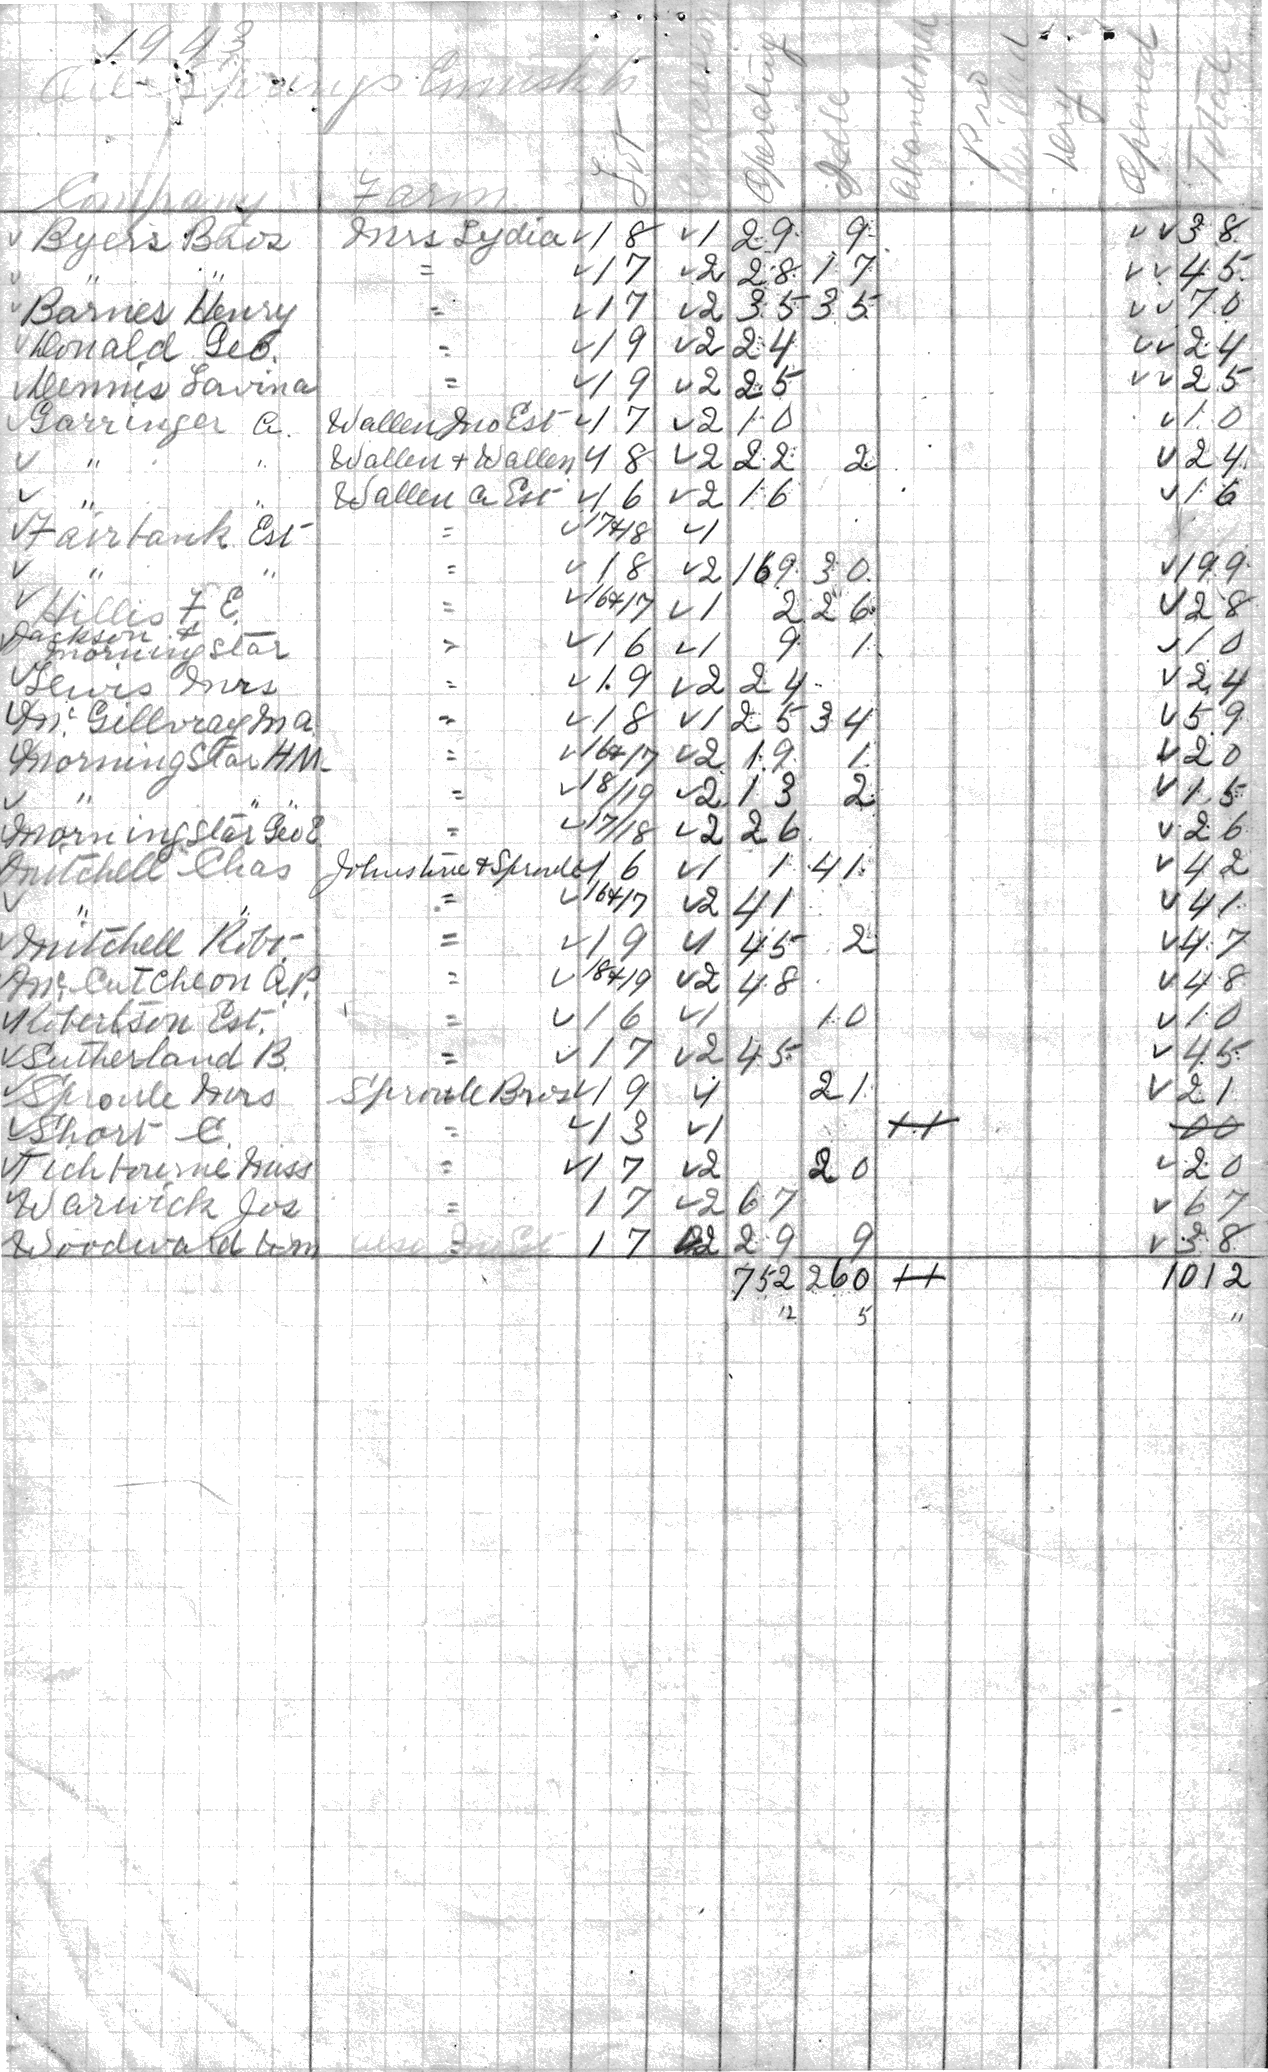 1943
Oil Springs Enniskillen
Company Farm Lot Concession Operating Idle Abandoned Pro Dry Opened Total
✓ Byers Bros Mrs Lydia ✓18 ✓1 29 9 ✓✓38
✓ " " = ✓17 ✓2 28 17 ✓✓45
Barnes Henry = ✓17 ✓2 35 35 ✓✓70
✓ Donald Geo. = ✓19 ✓2 24 ✓✓24
✓ Dennis Lavina = ✓19 ✓2 25 ✓✓25
✓ Garringer A. Wallen Jno Est ✓17 ✓2 10 ✓10
✓ " " Wallen + Wallen 18 ✓2 22 2 ✓24
✓ " " Wallen A Est ✓16 ✓2 16 ✓16
✓ Fairbank Est = ✓17+18 ✓1
✓ " " = ✓18 ✓2 169 30 ✓199
✓ Hillis F E. = ✓16+17 ✓1 2 26 ✓28
✓ Jackson + Morningstar = ✓16 ✓1 9 1 ✓10
✓ Lewis Mrs = ✓19 ✓2 24 ✓24
✓ Mc Gillvray M A. = ✓18 ✓1 25 34 ✓59
Morningstar H M. = ✓16+17 ✓2 19 1 ✓20
✓ " " " = ✓18/19 ✓2 13 2 ✓15
Morningstar Geo E = ✓17/18 ✓2 26 ✓26
Mitchell Chas Johnstone + Sproule 16 ✓1 1 41 ✓42
✓ " " = ✓16+17 ✓2 41 ✓41
✓ Mitchell Robt. = ✓19 ✓1 45 2 ✓47
Mc Cutcheon A.P. = ✓18+19 ✓2 48 ✓48
✓ Robertson Est. = ✓16 ✓1 10 ✓10
✓ Sutherland B. = ✓17 ✓2 45 ✓45
✓ Sproule Mrs Sproule Bros ✓19 ✓1 21 ✓21
✓ Short C. = ✓13 ✓1 11 00
✓ Tichbourne Miss = ✓17 ✓2 20 ✓20
✓ Warwick Jos = 17 ✓2 67 ✓67
Woodward Wm = 17 2 29 9 ✓38
752 260 11 1012
12 5 "